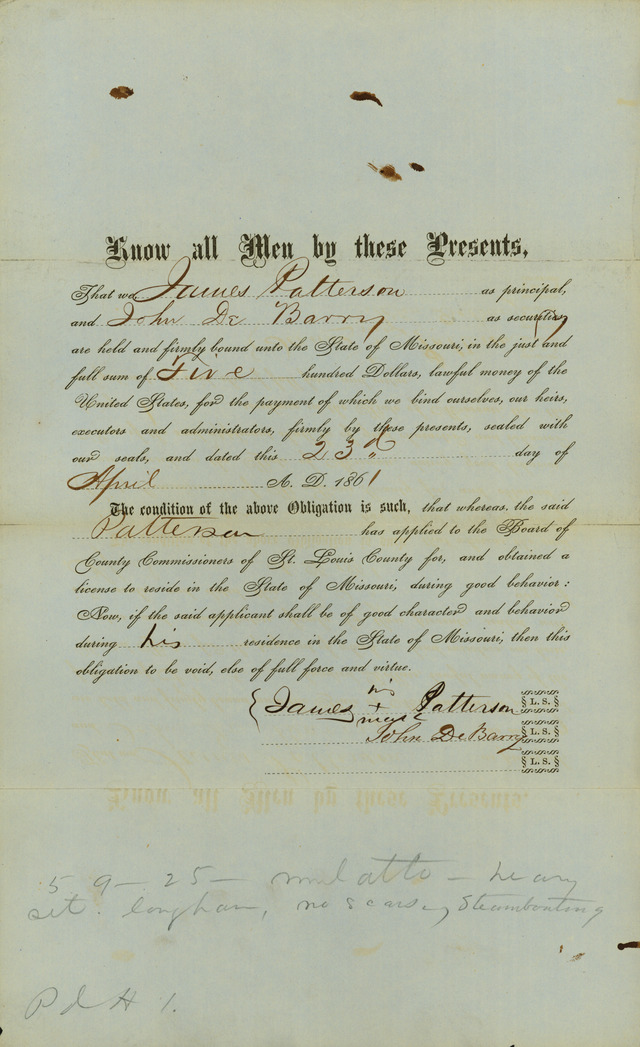 Know all Men by these Presents,
That we James Patterson as principal,
and John De Barry as security
are held and firmly bound unto the State of Missouri, in the just and
full sum of Five hundred Dollars, lawful money of the
United States, for the payment of which we bind ourselves, our heirs,
executors and administrators, firmly by these presents, sealed with
our seals, and dated this 23d day of
April A. D. 1861
The condition of the above Obligation is such, that whereas, the said
Patterson has applied to the Board of
County Commissioners of St. Louis County for, and obtained a
license to reside in the State of Missouri, during good behavior:
Now, if the said applicant shall be of good character and behavior
during his residence in the State of Missouri, then this
obligation to be void, else of full force and virtue.
his
James + Patterson L. S.
mark
John De Barry L. S.
L. S.
5 9 - 25 - mulatto - heavy
set. long hair, no scars, Steamboating
Pd